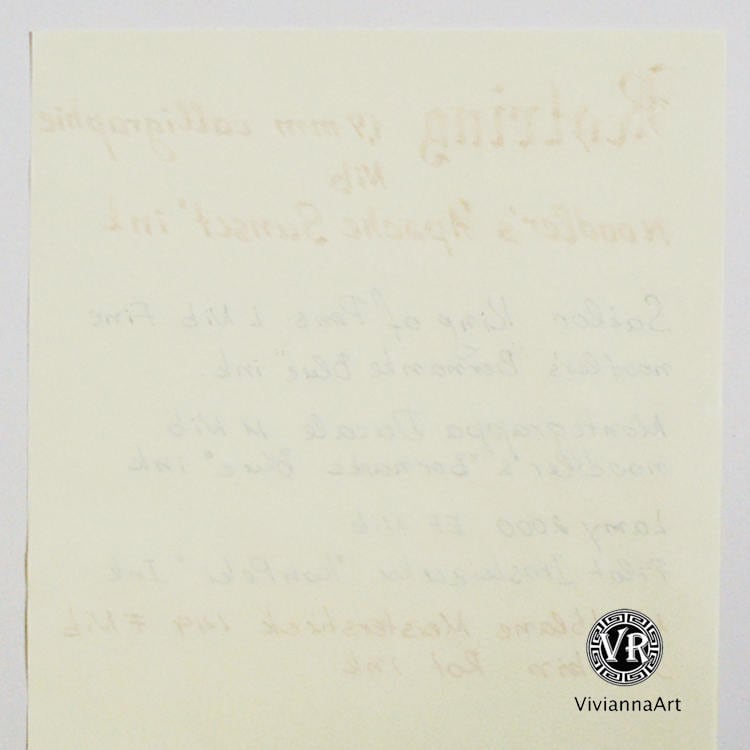 Rotring 1,9 mm calligraphie
Nib
Noodler's "Apache Sunset" ink
Sailor King of Pens L Nib Fine
noodler's "Bernanke Blue" ink.
Montegrappa Ducale M Nib
noodler's "Bernanke Blue" ink
Lamy 2000 EF Nib
Pilot Iroshizuku "KonPeki" Ink
Meisterstück 149 F Nib
Rot ink
VR
ViviannaArt